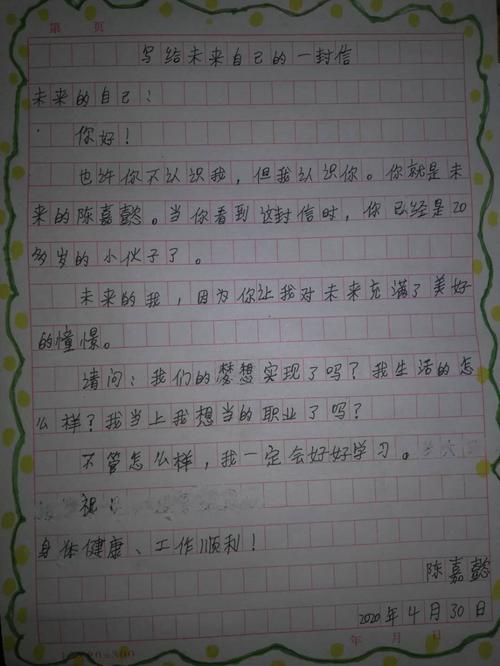 第 页
写给未来自己的一封信
未来的自己：
你好！
也许你不认识我，但我认识你。你就是未
来的陈嘉懿。当你看到这封信时，你已经是20
多岁的小伙子了。
未来的我，因为你让我对未来充满了美好
的憧憬。
请问：我们的梦想实现了吗？我生活的怎
么样？我当上我想当的职业了吗？
不管怎么样，我一定会好好学习。
祝：
身体健康、工作顺利！
陈嘉懿
2020年4月30日
年 月 日